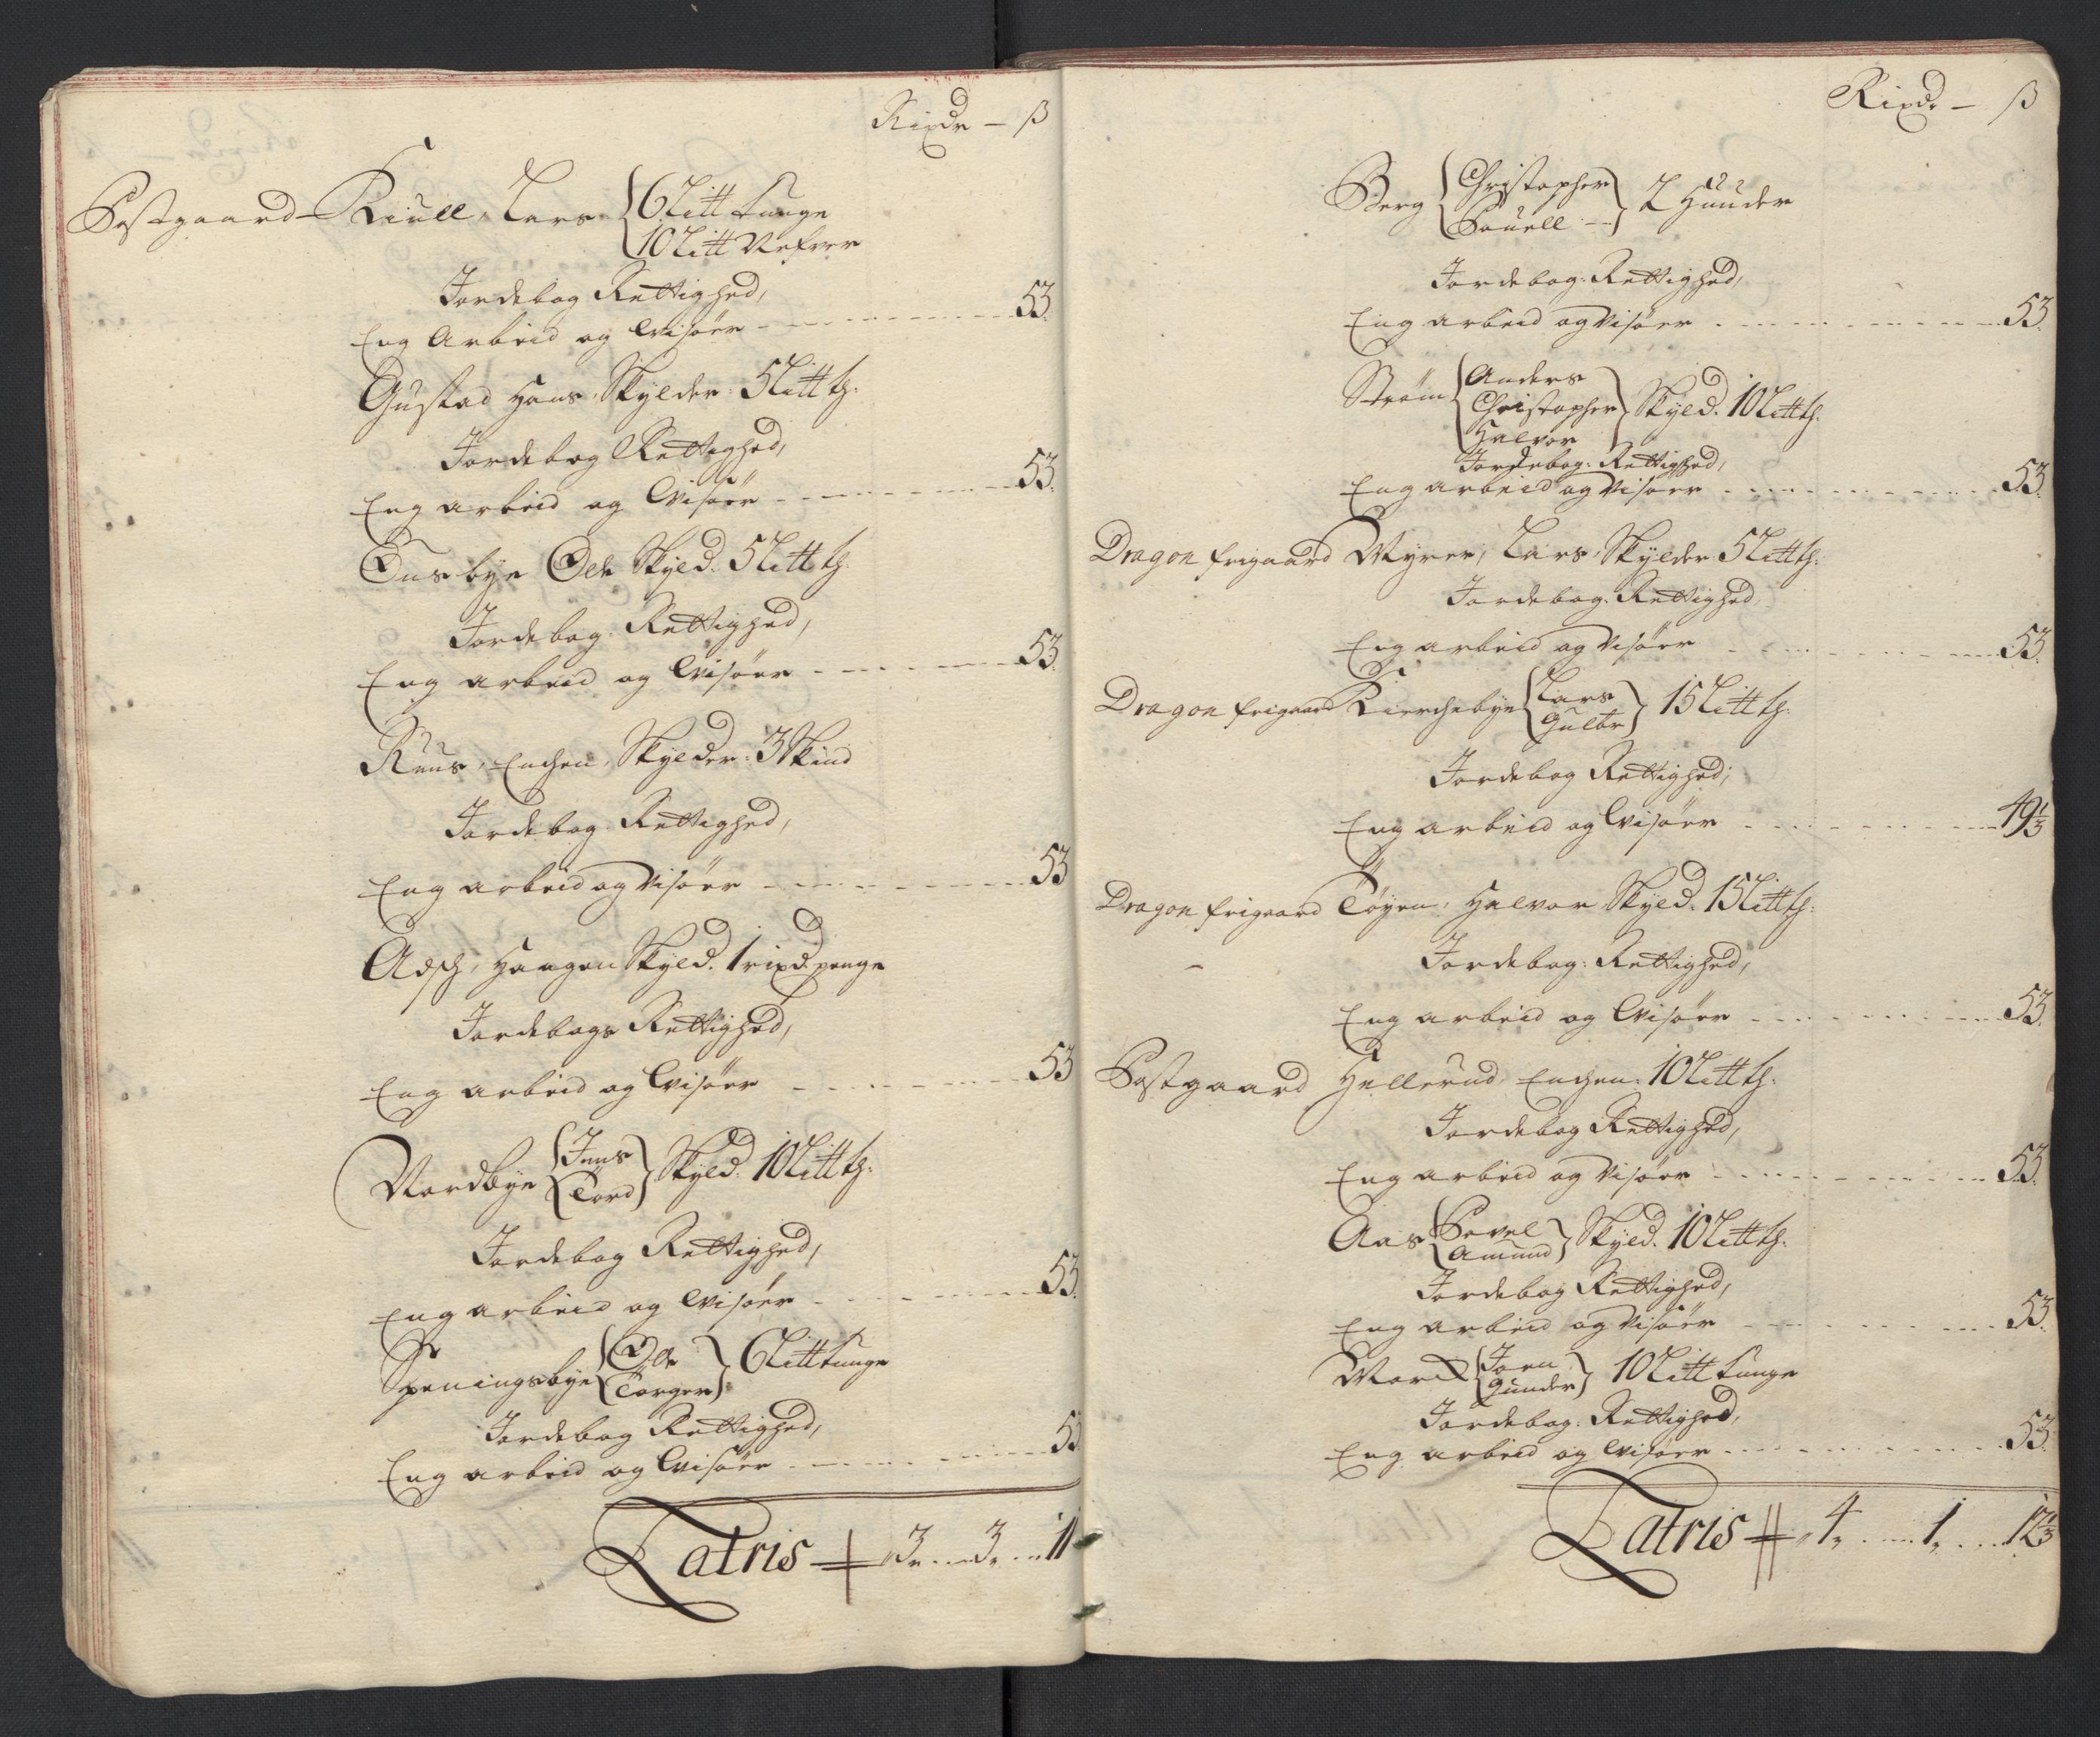 Rixdr – β
Postgaard Kiull, Lars { 6 Litt tunge
10 Litt Nefver
Jordebog Rettighed,
Eng Arbeid og Visøer 53.
Gustad Hans, Skylder: 5 Litt tg:
Jordebog Rettighed,
Eng arbeid og Visøer 53.
Ousbye Ole Skyld. 5 Litt tg.
Jordebog: Rettighed,
Eng arbeid og Visøer 53.
Ruus, Enchen, Skylder: 3 Skind
Jordebog Rettighed,
Eng arbeid og Visøer 53
Adsh, Haagen Skyld. 1 rixd. penge
Jordebogs Rettighed,
Eng arbeid og Visøer 53
Nordbye { Jens
Tord } Skyld. 10 Litt tg:
Jordebog Rettighed,
Eng arbeid og Visøer 53.
Speningsbye { Ole
Torger } 6 Litt tunge
Jordebog Rettighed,
Eng arbeid og Visøer 53
Latris 3 3 11
Rixdr – β
Berg { Christopher
Pouell } 2 Huuder
Jordebog: Rettighed,
Eng arbeid og Visøer 53.
Strøm { Anders
Christopher
Halvor } Skyld. 10 Litt tg.
Jordebog: Rettighed,
Eng arbeid og Visøer 53.
Dragon frigaard Myrer, Lars, Skylder 5 Litt tg:
Jordebog: Rettighed,
Eng arbeid og Visøer 53.
Dragon frigaard Kierchebye { Lars
Gulbr } 15 Litt tg.
Jordebog Rettighed,
Eng arbeid og Visøer 49 1/3
Dragon frigaard Tøyen, Halvor Skyld. 15 Litt tg:
Jordebog: Rettighed,
Eng arbeid og Visøer 53.
Postgaard Hellerud, Enchen: 10 Litt tg:
Jordebog Rettighed,
Eng arbeid og Visøer 53.
Aas { Povel
Amund } Skyld. 10 Litt tg:
Jordebog Rettighed,
Eng arbeid og Visøer 53.
Mork { Joen
Gunder } 10 Litt tunge
Jordebog: Rettighed,
Eng arbeid og Visøer 53.
Latris 4 1 12 1/3